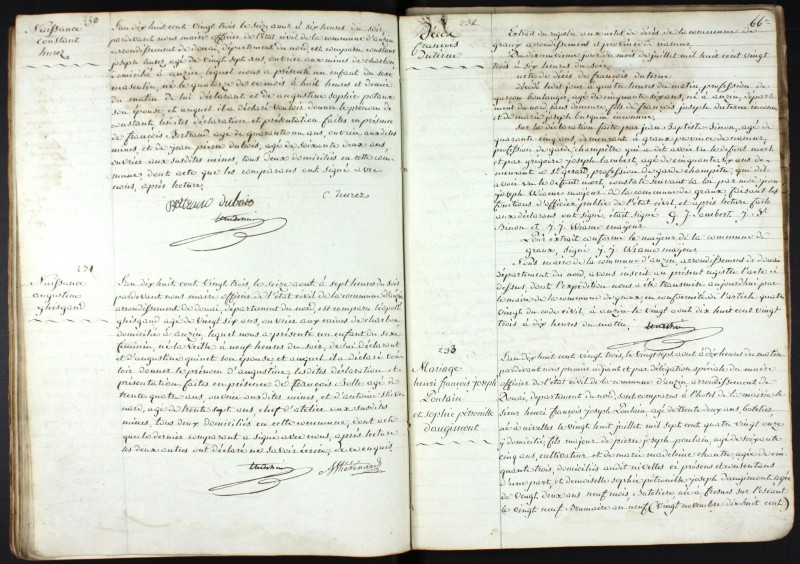 230
Naissance
Constant
hurez
L'an dix huit cent vingt trois le seize août à six heures du soir,
pardevant nous maire officier de l'état civil de la commune d'anzin
arrondissement de douai, département du nord, est comparu constant
joseph hurez, agé de vingt sept ans, ouvrier aux mines de charbon,
domicilié à anzin, lequel nous a présenté un enfant du sexe
masculin, né le quatorze de ce mois à huit heures et demie
du matin de lui déclarant et de augustine sophie potaux
son épouse, et auquel il a déclaré vouloir donner le prénom de
constant, lesdites déclaration et présentation faites en présence
de françois Bertrand agé de quarante un ans, ouvrier aux dites
mines, et de jean pierre dubois, agé de soixante deux ans,
ouvrier aux susdites mines, tous deux domiciliés en cette com-
mune dont acte que les comparans ont signé avec
nous, après lecture.
C hurez
Bertrand dubois
231
Naissance
augustine
ghisgand
L'an dix huit cent vingt trois, le seize août à sept heures du soir
pardevant nous maire officier de l'état civil de la commune d'anzin
arrondissement de douai, département du nord, est comparu léopold
ghisgand agé de vingt six ans, ouvrier aux mines de charbon
domicilié à anzin, lequel nous a présenté un enfant du sexe
féminin, né la veille à neuf heures du soir, de lui déclarant
et d'augustine quinet son épouse et auquel il a déclaré vou-
loir donner le prénom d'augustine, lesdites déclaration et
présentation faites en présence de françois Bolle agé de
trente quatre ans, ouvrier aux dites mines, et d'antoine thive-
nard, agé de trente sept ans chef d'atelier aux susdites
mines, tous deux domiciliés en cette commune, dont acte
que le dernier comparant a signé avec nous, après lecture
les deux autres ont déclaré ne savoir écrire, de ce enquis.
66
232
Décès
françois
Duterne
Extrait du registre aux actes de décès de la commune de
graux arrondissement et province de namur.
Du douzième jour du mois de juillet mil huit cent vingt
trois à six heures du soir.
acte de décès de françois duterne
décédé ledit jour à quatre heures du matin, profession de
garçon boulanger, agé de cinquante sept ans, né à anzin, départe-
ment du nord et demeuré, fils de françois joseph duterne
et de marie joseph busquin
Sur la déclaration faite par jean Baptiste Binon, agé de
quarante cinq ans, demeurant à graux province de namur,
profession de garde champêtre qui a dit avoir vu le défunt mort
et par grégoire joseph lambert, agé de cinquante six ans de-
meurant à St gérard profession de garde champêtre, qui dit
avoir vu le défunt mort, constaté suivant la loi par moi jean
joseph Wiame mayeur de la commune de graux, faisant les
fonctions d'officier public de l'état civil, et après lecture faite
aux déclarans ont signé, était signé g. J. Lambert J. Bte
Binon et J. J. Wiame mayeur.
Pour extrait conforme le mayeur de la commune de
graux, signé J. J. Wiame mayeur
Nous maire de la commune d'anzin, arrondissement de douai
département du nord, avons inscrit au présent registre l'acte ci
dessus, dont l'expédition nous a été transmise aujourd'hui par
le maire de la commune de graux, en conformité de l'article quatre
vingt du code civil, à anzin le vingt août dix huit cent vingt
trois à dix heures du matin.
233
Mariage
henri françois joseph
Poulain
et sophie pétronille
daugimont
L'an dix huit cent vingt trois, le vingt sept août à dix heures du matin
pardevant nous premier adjoint et par délégation spéciale du maire
officier de l'état civil de la commune d'anzin, arrondissement de
Douai, département du nord, sont comparus à l'hotel de la mairie le
sieur henri françois joseph Poulain, agé de trente deux ans, batelier
né à nivelles le vingt huit juillet mil sept cent quatre vingt onze
y domicilié, fils majeur de pierre joseph poulain, agé de soixante
cinq ans, cultivateur et de marie madeleine chantre, agée de cin-
quante trois, domiciliés audit nivelles ci présens et consentans
d'une part, et demoiselle sophie pétronille joseph daugimont, agée
de vingt deux ans neuf mois, Batelière née à fresnes sur l'escaut
le vingt neuf Brumaire an neuf (vingt novembre dix huit cent)